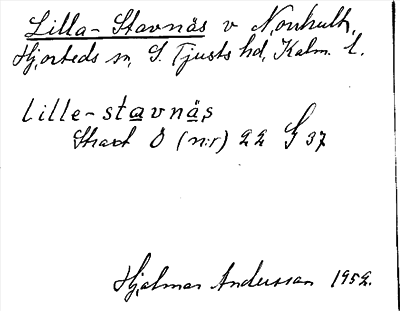 Lilla-Stavnås v Norrhult,
Hjorteds sn, S. Tjusts hd, Kalm. l.
lille-stavnås
Strax Ö (n:r) 22 G 37
Hjalmar Andersson 1952.